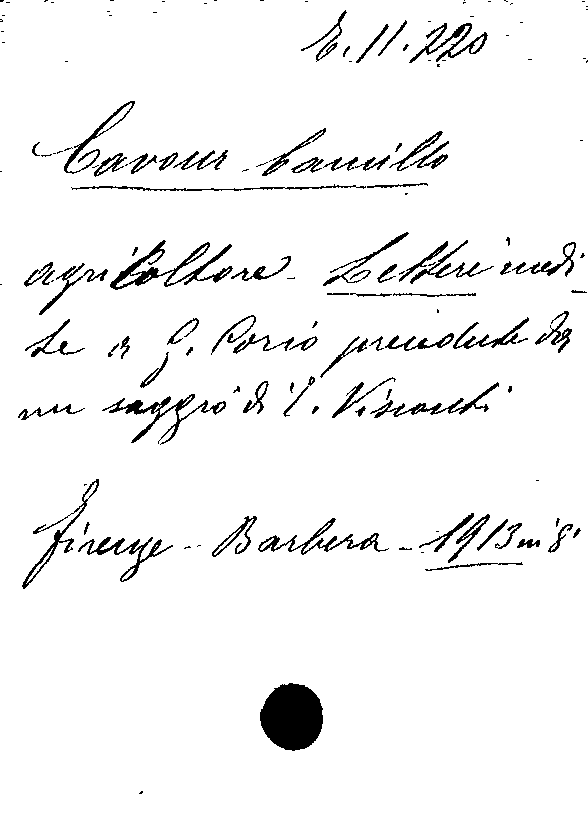 E.11.220
Cavour Camillo
agricoltore - Lettere inedi-
te a G. Corio precedute da
un saggio di E. Visconti
Firenze - Barbera - 1913 in 8°